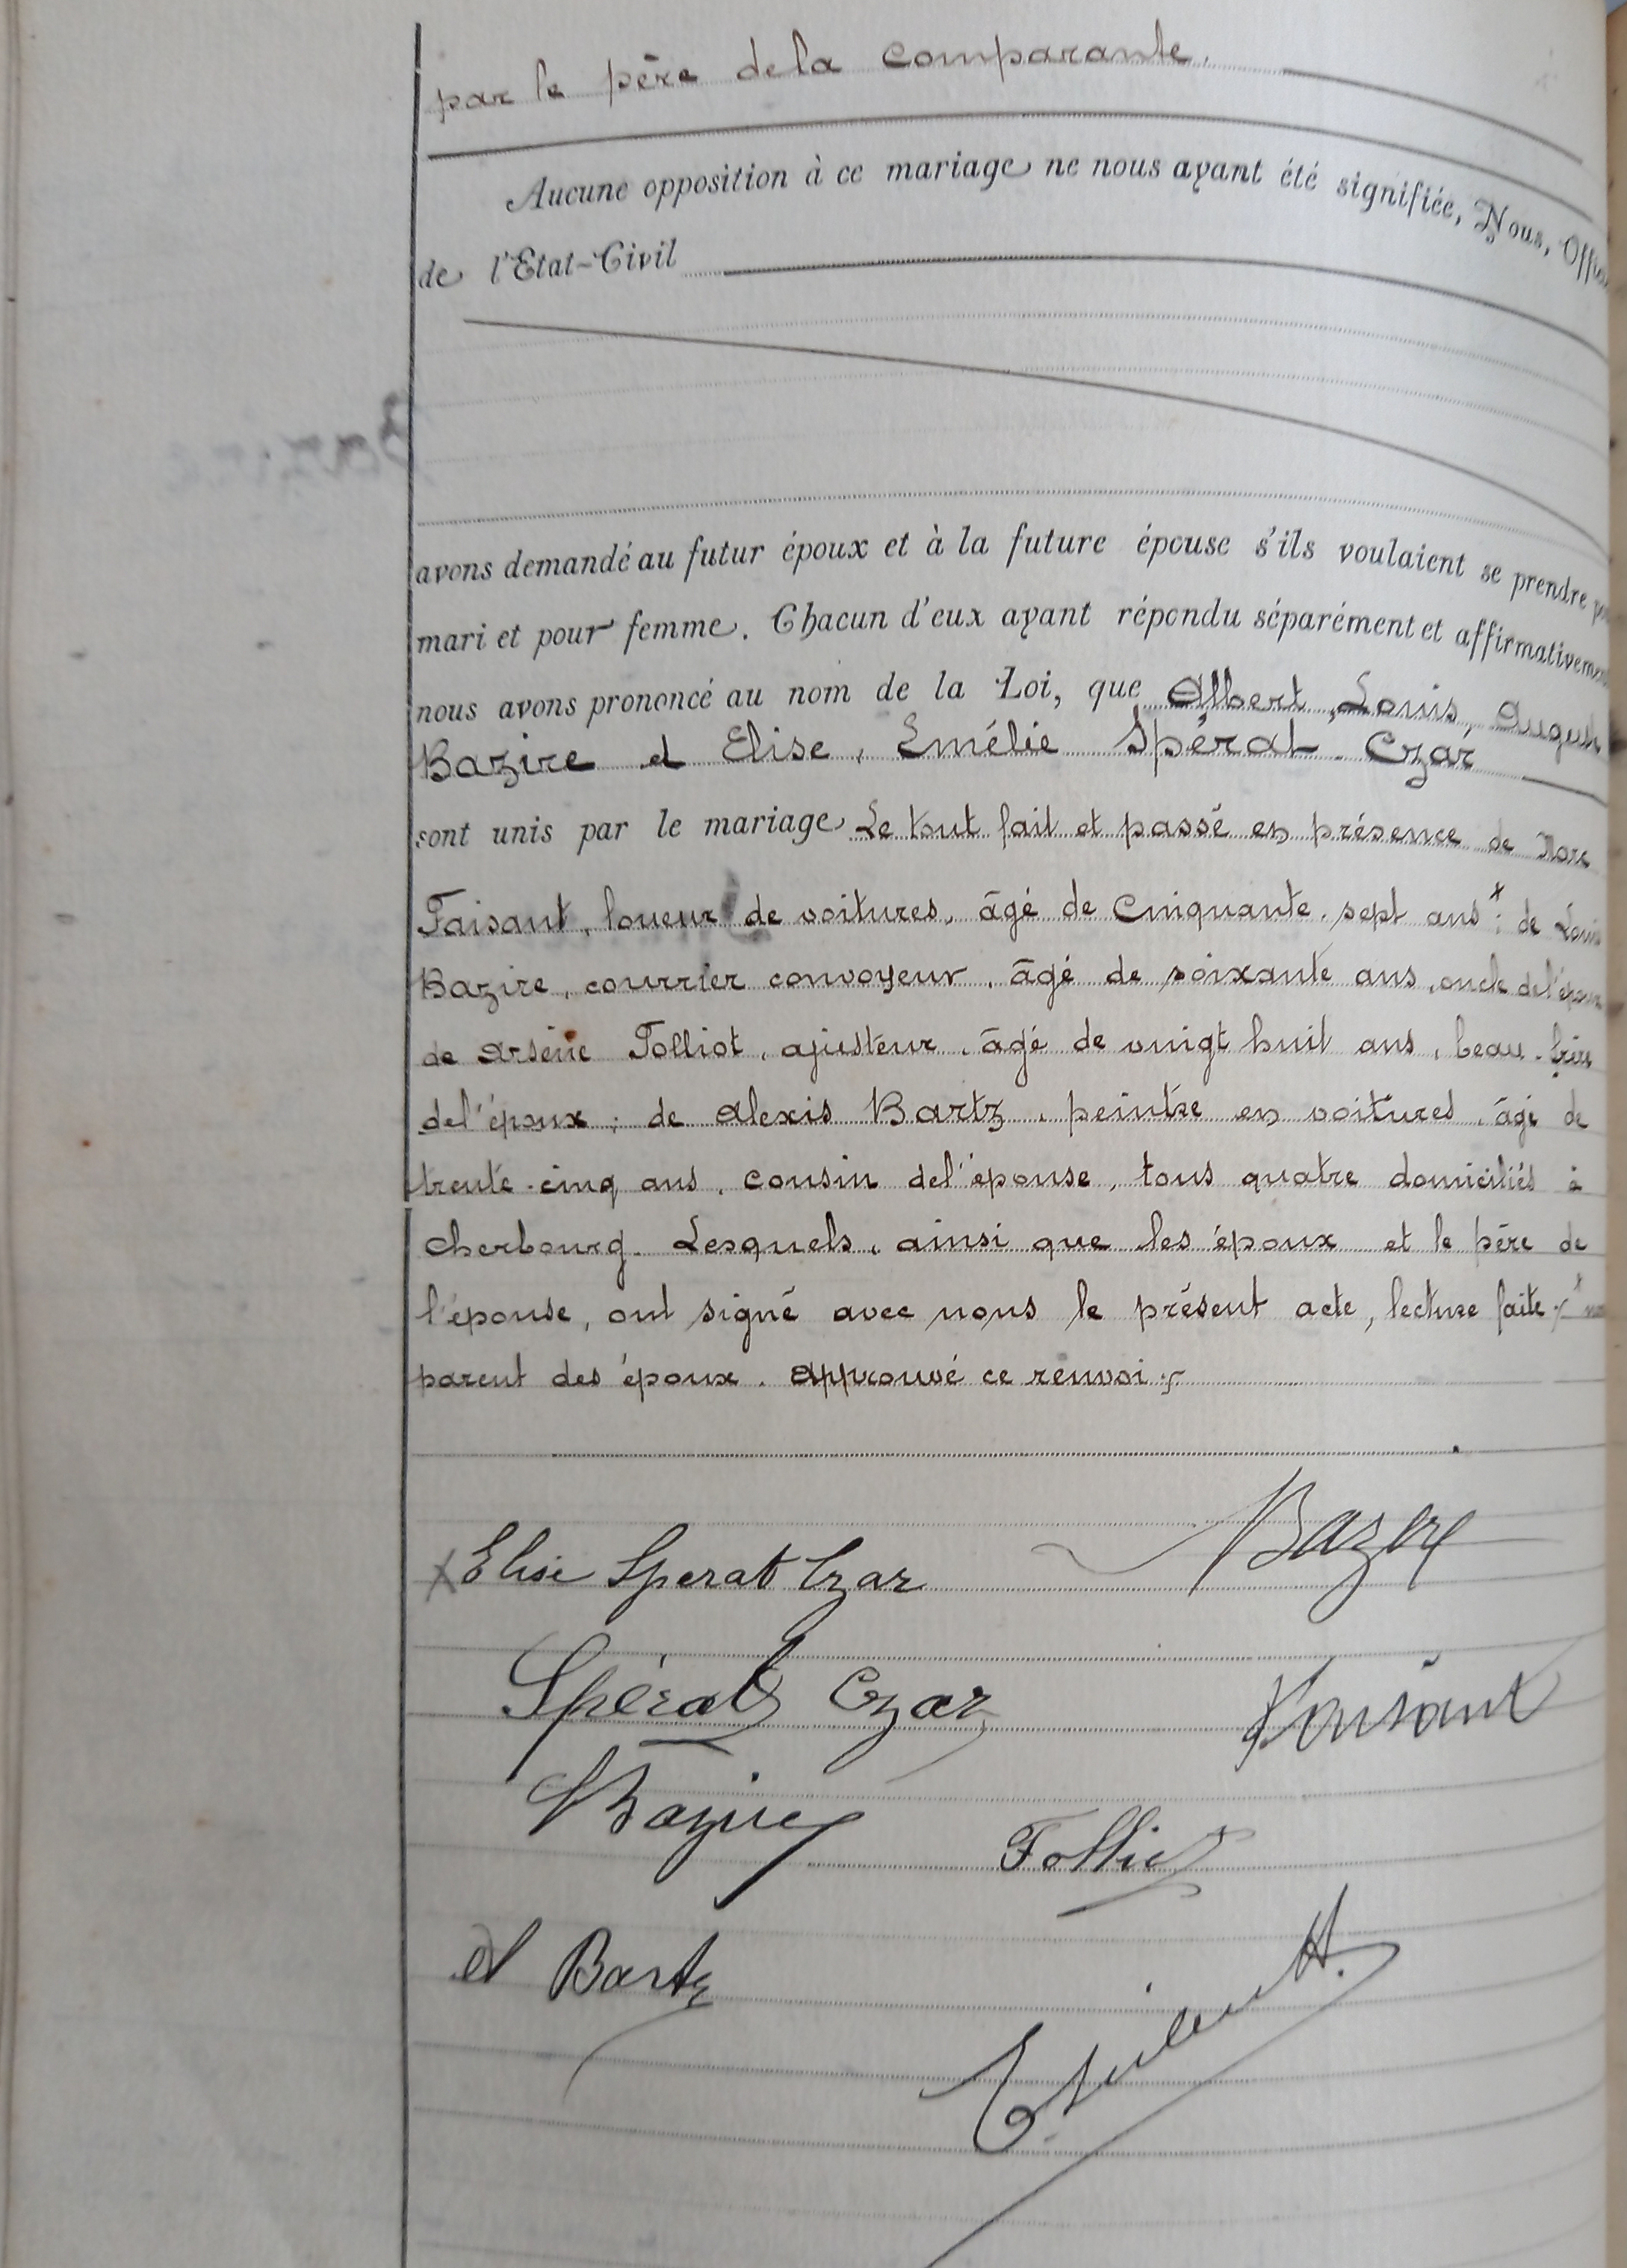 par le père dela comparante.
Aucune opposition à ce mariage ne nous ayant été signifiée, Nous,
de l'Etat-Civil
avons demandé au futur époux et à la future épouse s'ils voulaient se prendre
mari et pour femme. Chacun d'eux ayant répondu séparément et
nous avons prononcé au nom de la Loi, que Albert, Louis,
Bazire et Elise, Emélie Spérat-Czar
sont unis par le mariage Le tout fait et passé en présence de
Faisant, loueur de voitures, âgé de cinquante-sept ans x; de Louis
Bazire, courrier convoyeur, âgé de soixante ans, oncle del'époux
de Arsène Folliot, ajusteur, âgé de vingt huit ans, beau-frère
del'époux; de Alexis Bartz, peintre en voitures, âgé de
trente-cinq ans, cousin del'épouse, tous quatre domiciliés à
Cherbourg. Lesquels, ainsi que les époux et le père de
l'épouse, ont signé avec nous le présent acte, lecture faite x
parent des époux. Approuvé ce renvoi
Elise Sperat Czar
Bazire
Spérat Czar
Faisant
Bazire
Folliot
Bartz